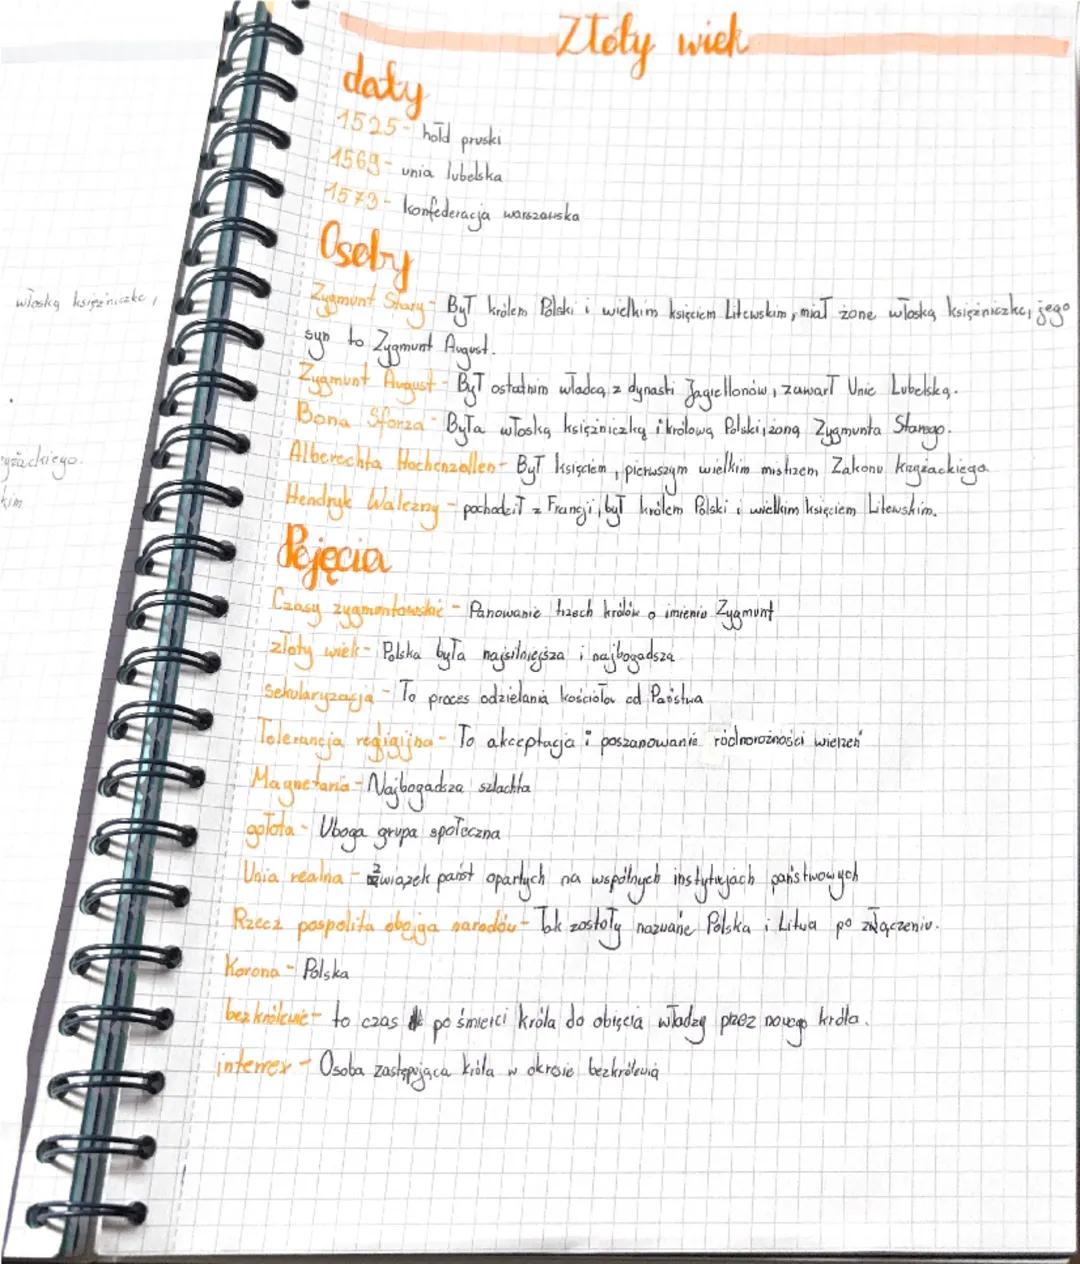 Złoty wiek
daty
1525 - hołd pruski
1569 - unia lubelska
1573 - konfederacja warszawska
Osoby
włoską księżniczkę,
Zygmunt Stary - Był królem Polski i wielkim księciem Litewskim, miał żonę włoską księżniczkę, jego
syn to Zygmunt August.
Zygmunt August - Był ostatnim władcą z dynasti Jagiellonów, zawarł Unie Lubelską.
Bona Sforza - Była włoską księżniczką i królową Polski, żoną Zygmunta Starego.
Alberechta Hochenzollen - Był księciem, pierwszym wielkim mistrzem Zakonu Krzyżackiego
Hendryk Walezny - pochodził z Francji, był królem Polski i wielkim księciem Litewskim.
Pojęcia
Czasy zygmuntowskie - Panowanie trzech królów o imieniu Zygmunt
złoty wiek - Polska była najsilniejsza i najbogadsza
sekularyzacja - To proces odzielania kościoła od Państwa
Tolerancja regigijna - To akceptacja i poszanowanie ródnorożności wierzeń
Magnetaria - Najbogadsza szlachta
gołota - Uboga grupa społeczna
Unia realna - związek państ opartych na wspólnych instytucjach państwowych
Rzecz pospolita obojga narodów - Tak zostały nazwane Polska i Litwa po złączeniu.
Korona - Polska
bezkrólewie - to czas po śmierci króla do obięcia władzy przez nowego króla.
interrex - Osoba zastępująca króla w okresie bezkrólewia